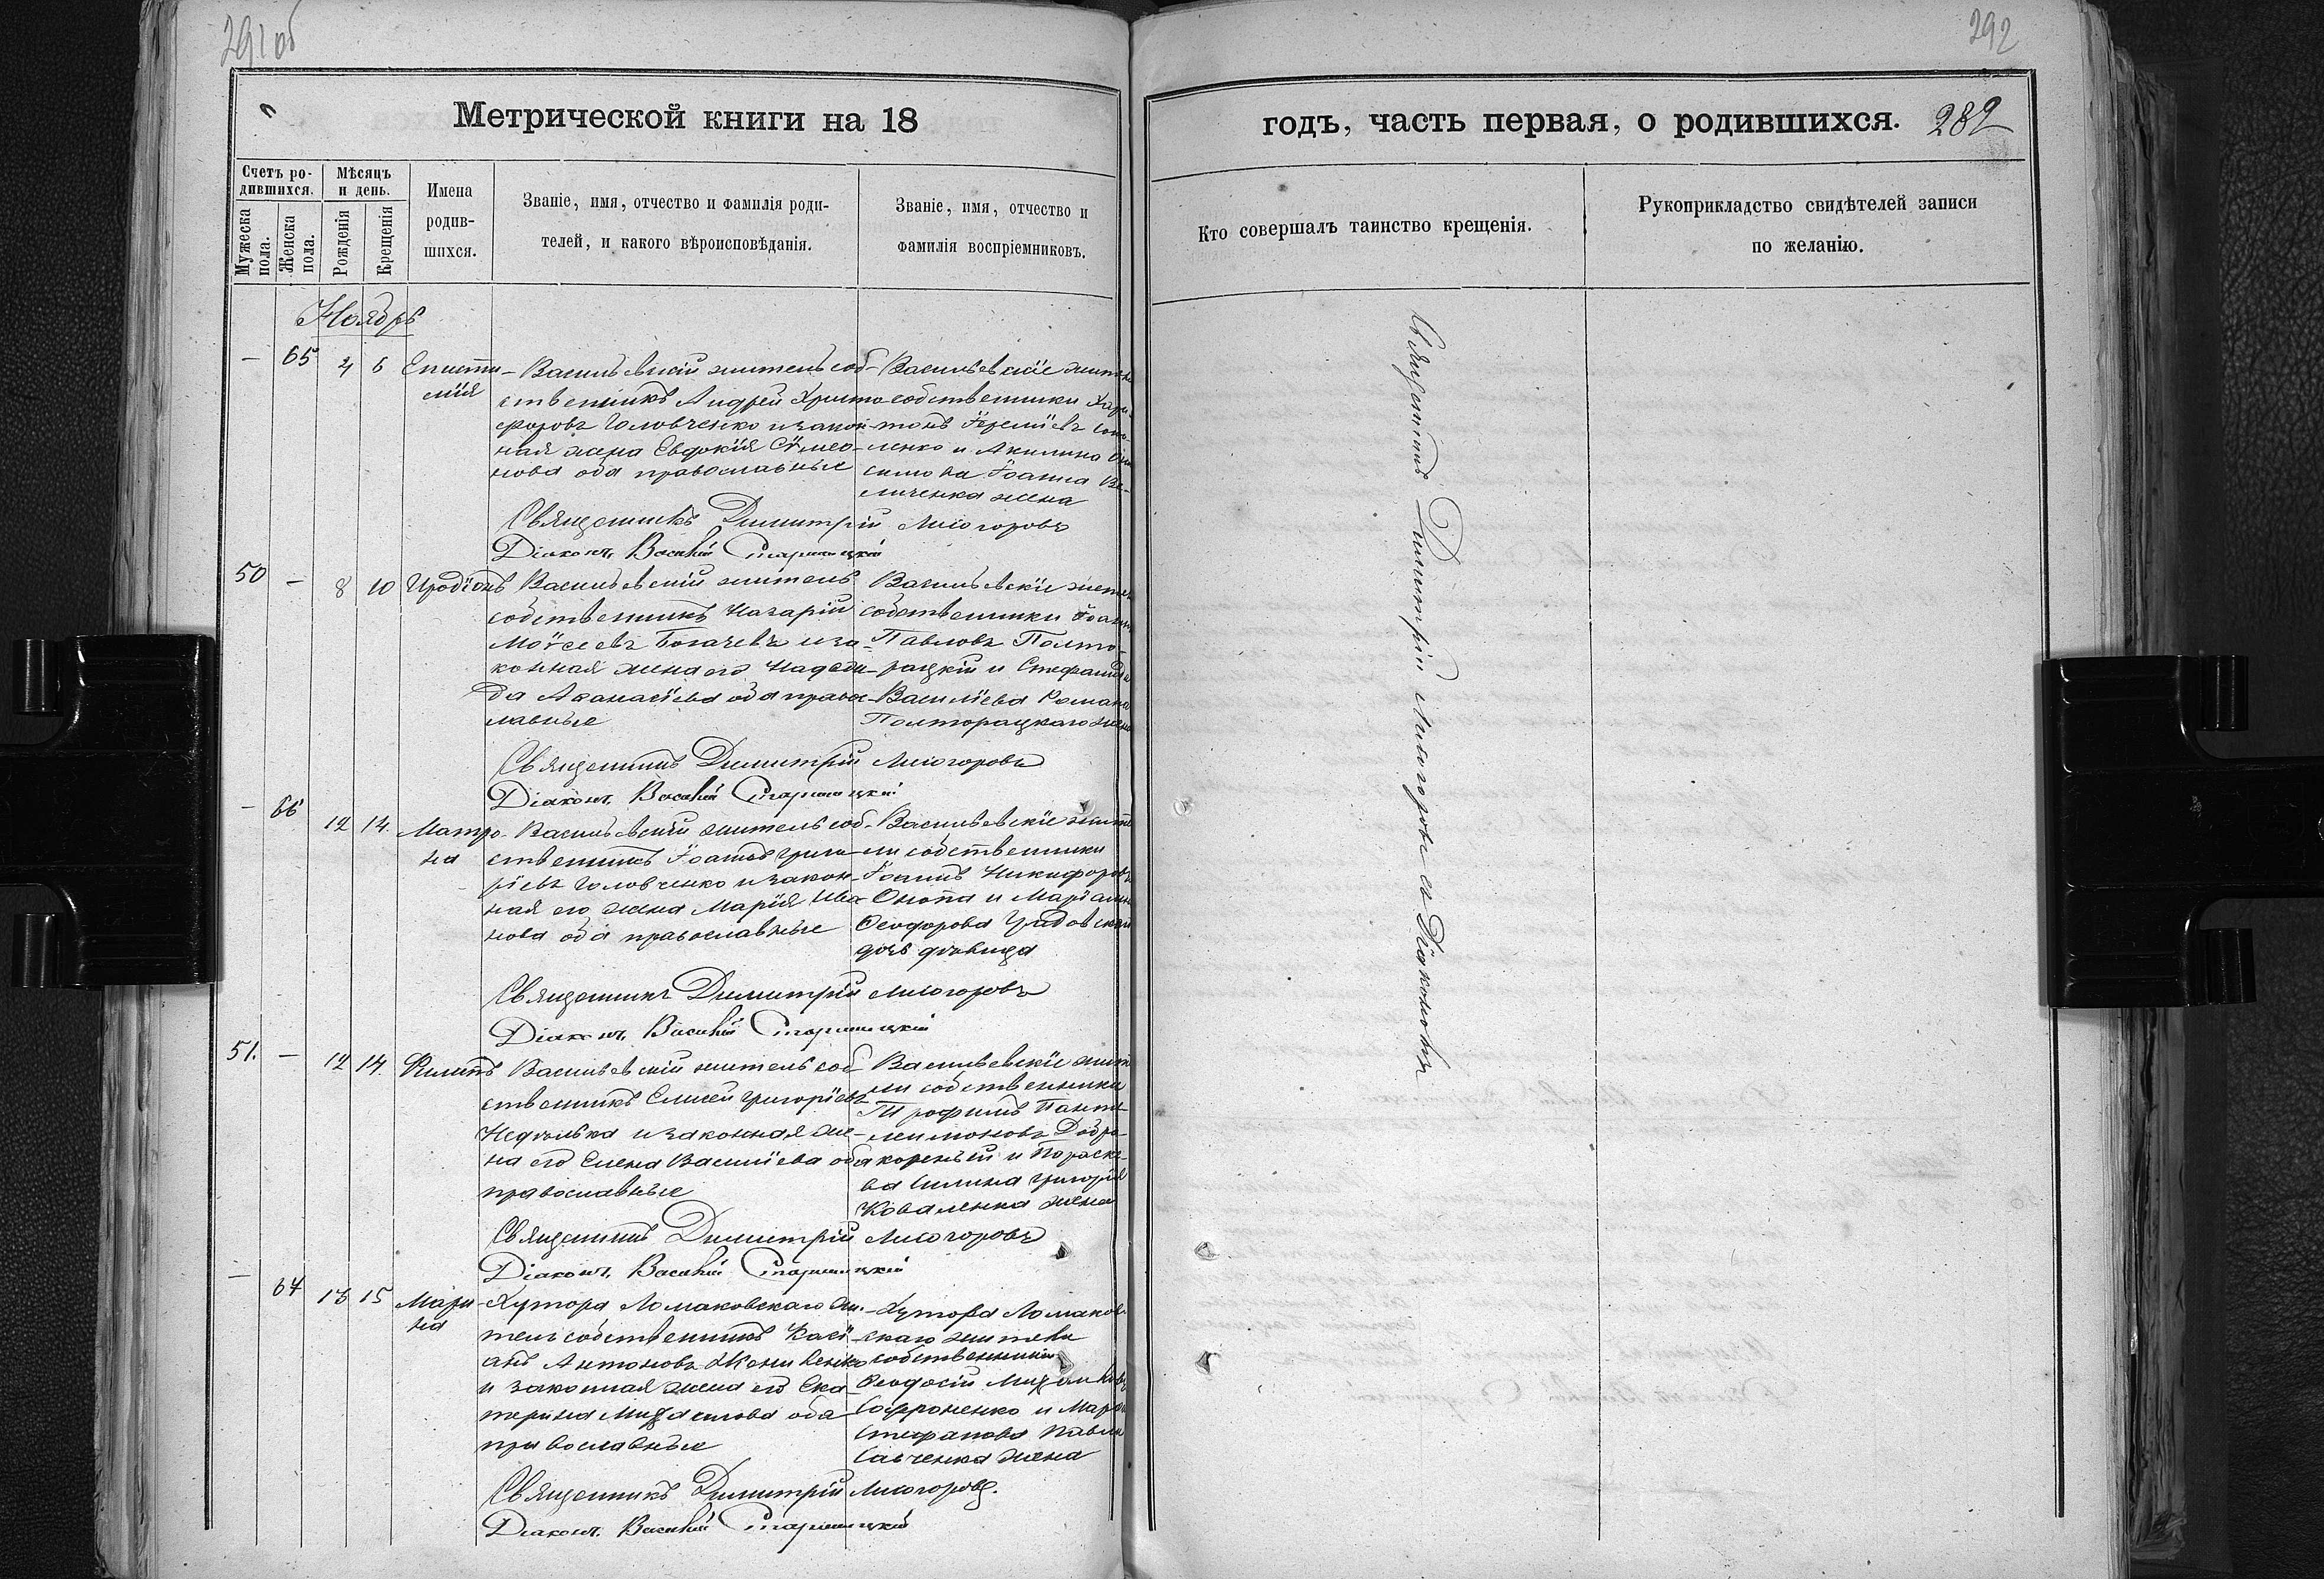 291 об
292
Метрической книги на 18
годъ, часть первая, о родившихся. 282
Счетъ родившихся.
Мѣсяцъ и день.
Мужеска пола.
Женска пола.
Рожденія
Крещенія
Имена родившихся.
Званіе, имя, отчество и фамилія родителей, и какого вѣроисповѣданія.
Званіе, имя, отчество и фамилія воспріемниковъ.
Кто совершалъ таинство крещенія.
Рукоприкладство свидѣтелей записи по желанію.
Ноябрь
— 65 4 6 Епистимія
Васильевскій житель соб-
ственникъ Андрей Христо
форовъ Головченко и закон-
ная жена Евдокія Сѵмео-
нова оба православные
Васильевскіе жители
собственники Хари-
тонъ Іереміевъ
ленко и Акилина
симова Іоанна Ве-
личенка жена
Священникъ Димитрій Лисогоровъ
Діаконъ Василій Старицкій
50 — 8 10 Иродіонъ
Васильевскій житель
собственникъ Назарій
Моѵсеевъ Богачевъ и за-
конная жена его Надеж-
да Аѳанасіева оба правос-
лавные
Васильевскіе жители
собственники Іоаннъ
Павловъ Полто-
рацкій и Стефанида
Василіева Романа
Полторацкаго жена
Священникъ Димитрій Лисогоровъ
Діаконъ Василій Старицкій
— 66 12 14. Матрона
Васильевскій житель соб-
ственникъ Іоаннъ Григо-
ріевъ Головченко и закон-
ная его жена Марія Ива-
нова оба православные
Васильевскіе жите
ли собственники
Іоаннъ Никифоровъ
Онопа и Маріанна
Ѳеодорова
дочь дѣвица
Священникъ Димитрій Лисогоровъ
Діаконъ Василій Старицкій
51. — 12 14. Филипъ
Васильевскій житель соб-
ственникъ Елисей Григоріевъ
Недѣлька и законная же-
на его Елена Василіева оба
православные
Васильевскіе жите
ли собственники
Трофимъ Панте-
лимоновъ Добро-
коренѣй и Параске-
ва Ілліна Григорія
Коваленка жена
Священникъ Димитрій Лисогоровъ
Діаконъ Василій Старицкій
— 67 13 15 Марина
Хутора Ломаковскаго жи-
тель собственникъ Касі-
анъ Антоновъ
и законная жена его Ека-
терина Михаилова оба
православные
Хутора Ломаков-
скаго жители
собственники
Ѳеодосій Михаиловъ
Софроненко и Марія
Стефанова Павла
Савченка жена
Священникъ Димитрій Лисогоровъ.
Діаконъ Василій Старицкій
Священникъ Димитрій Лисогоровъ съ Діакономъ